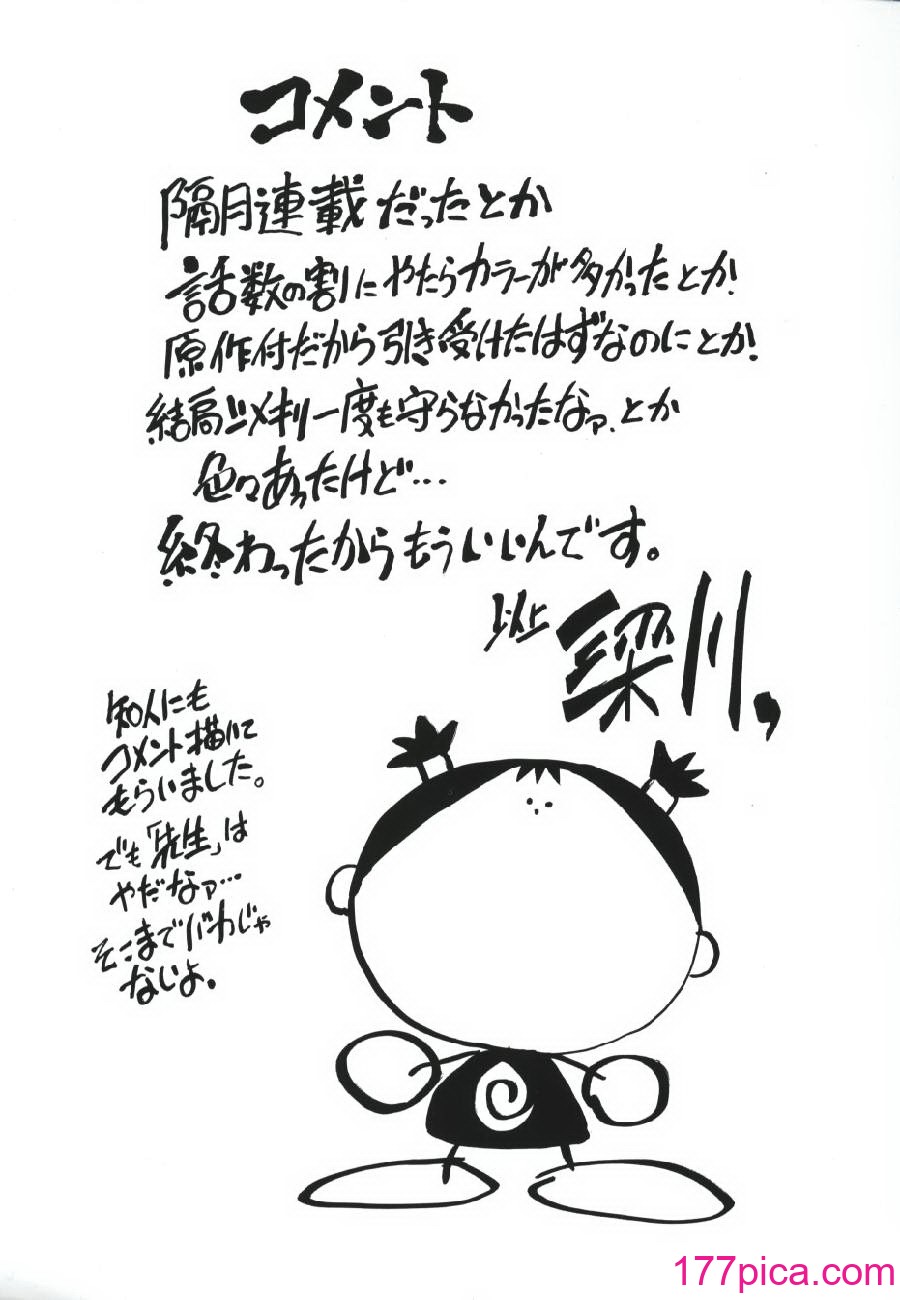 コメント
隔月連載だったとか
話数の割にやたらカラーが多かったとか、
原作付だから引き受けたはずなのにとか、
結局〆メキリ一度も守らなかったなァ、とか
色々あったけど…
終わったからもういいんです。
以上 梁川、
知人にも
コメント描いて
もらいました。
でも「先生」は
やだなァ…
そこまでバカじゃ
ないよ。
177pica.com